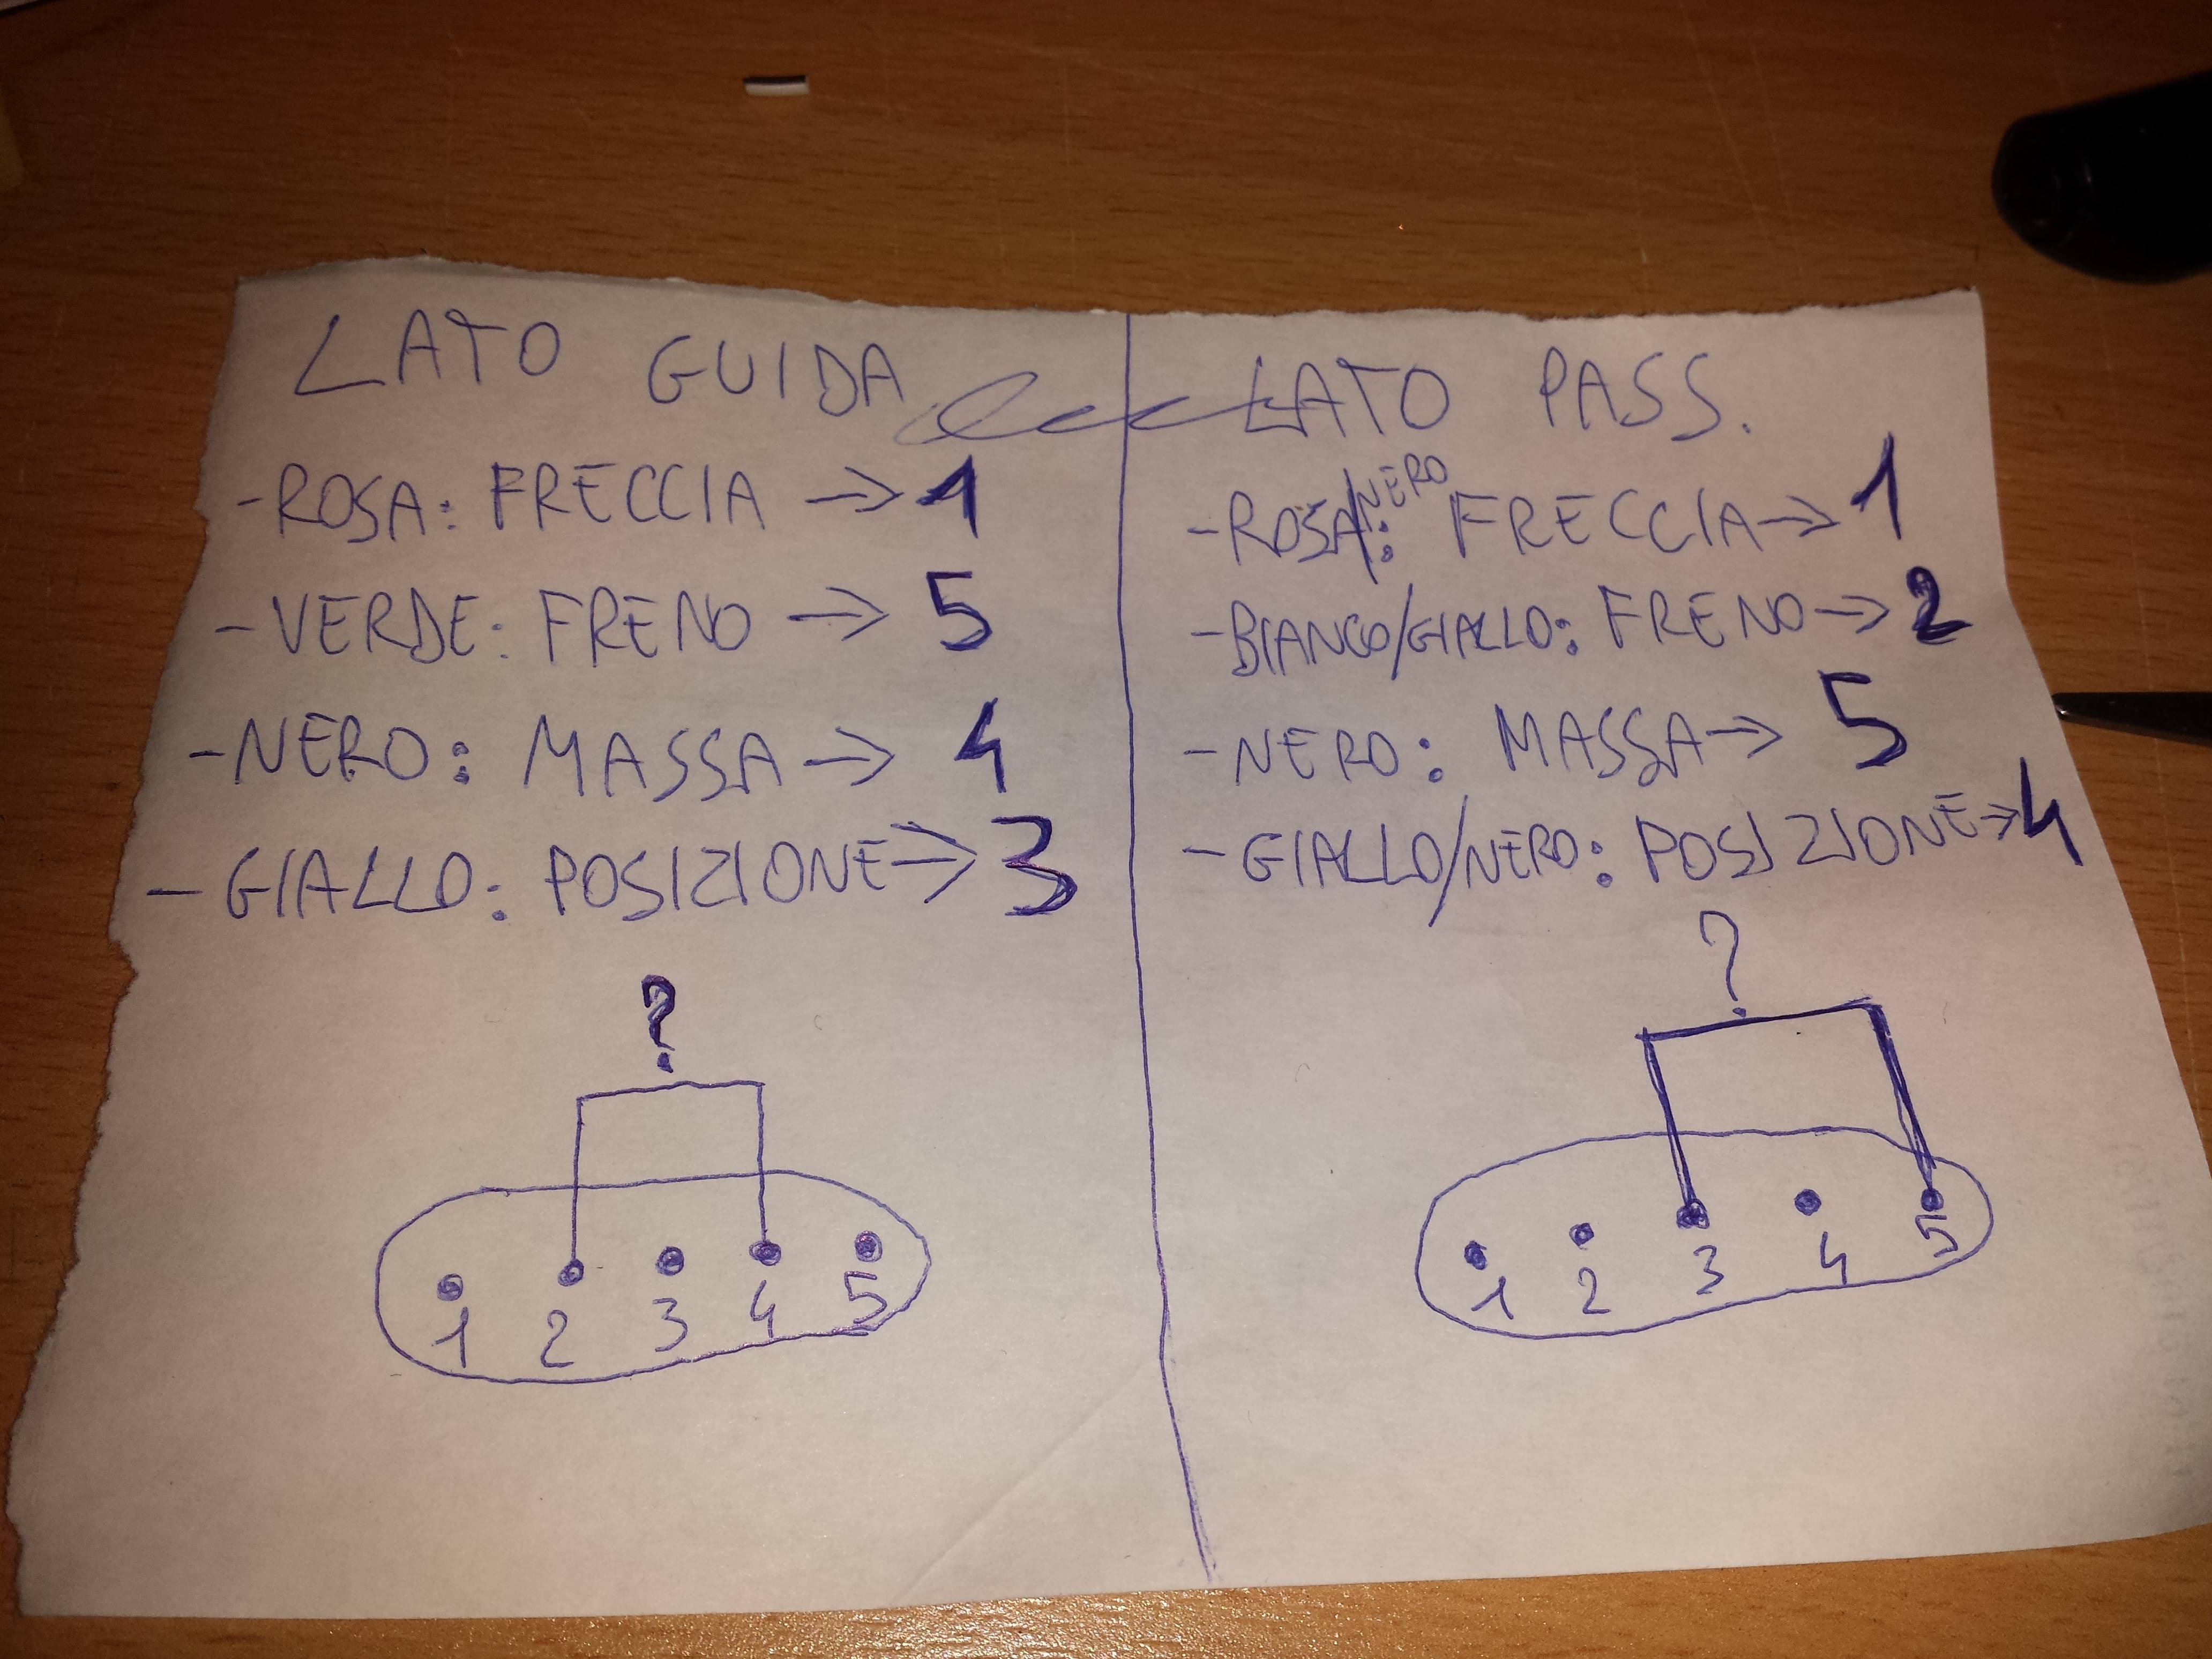 LATO GUIDA
-ROSA: FRECCIA → 1
-VERDE: FRENO → 5
-NERO: MASSA → 4
-GIALLO: POSIZIONE → 3
?
1 2 3 4 5
LATO PASS.
-ROSA/NERO: FRECCIA → 1
-BIANCO/GIALLO: FRENO → 2
-NERO: MASSA → 5
-GIALLO/NERO: POSIZIONE → 4
?
1 2 3 4 5